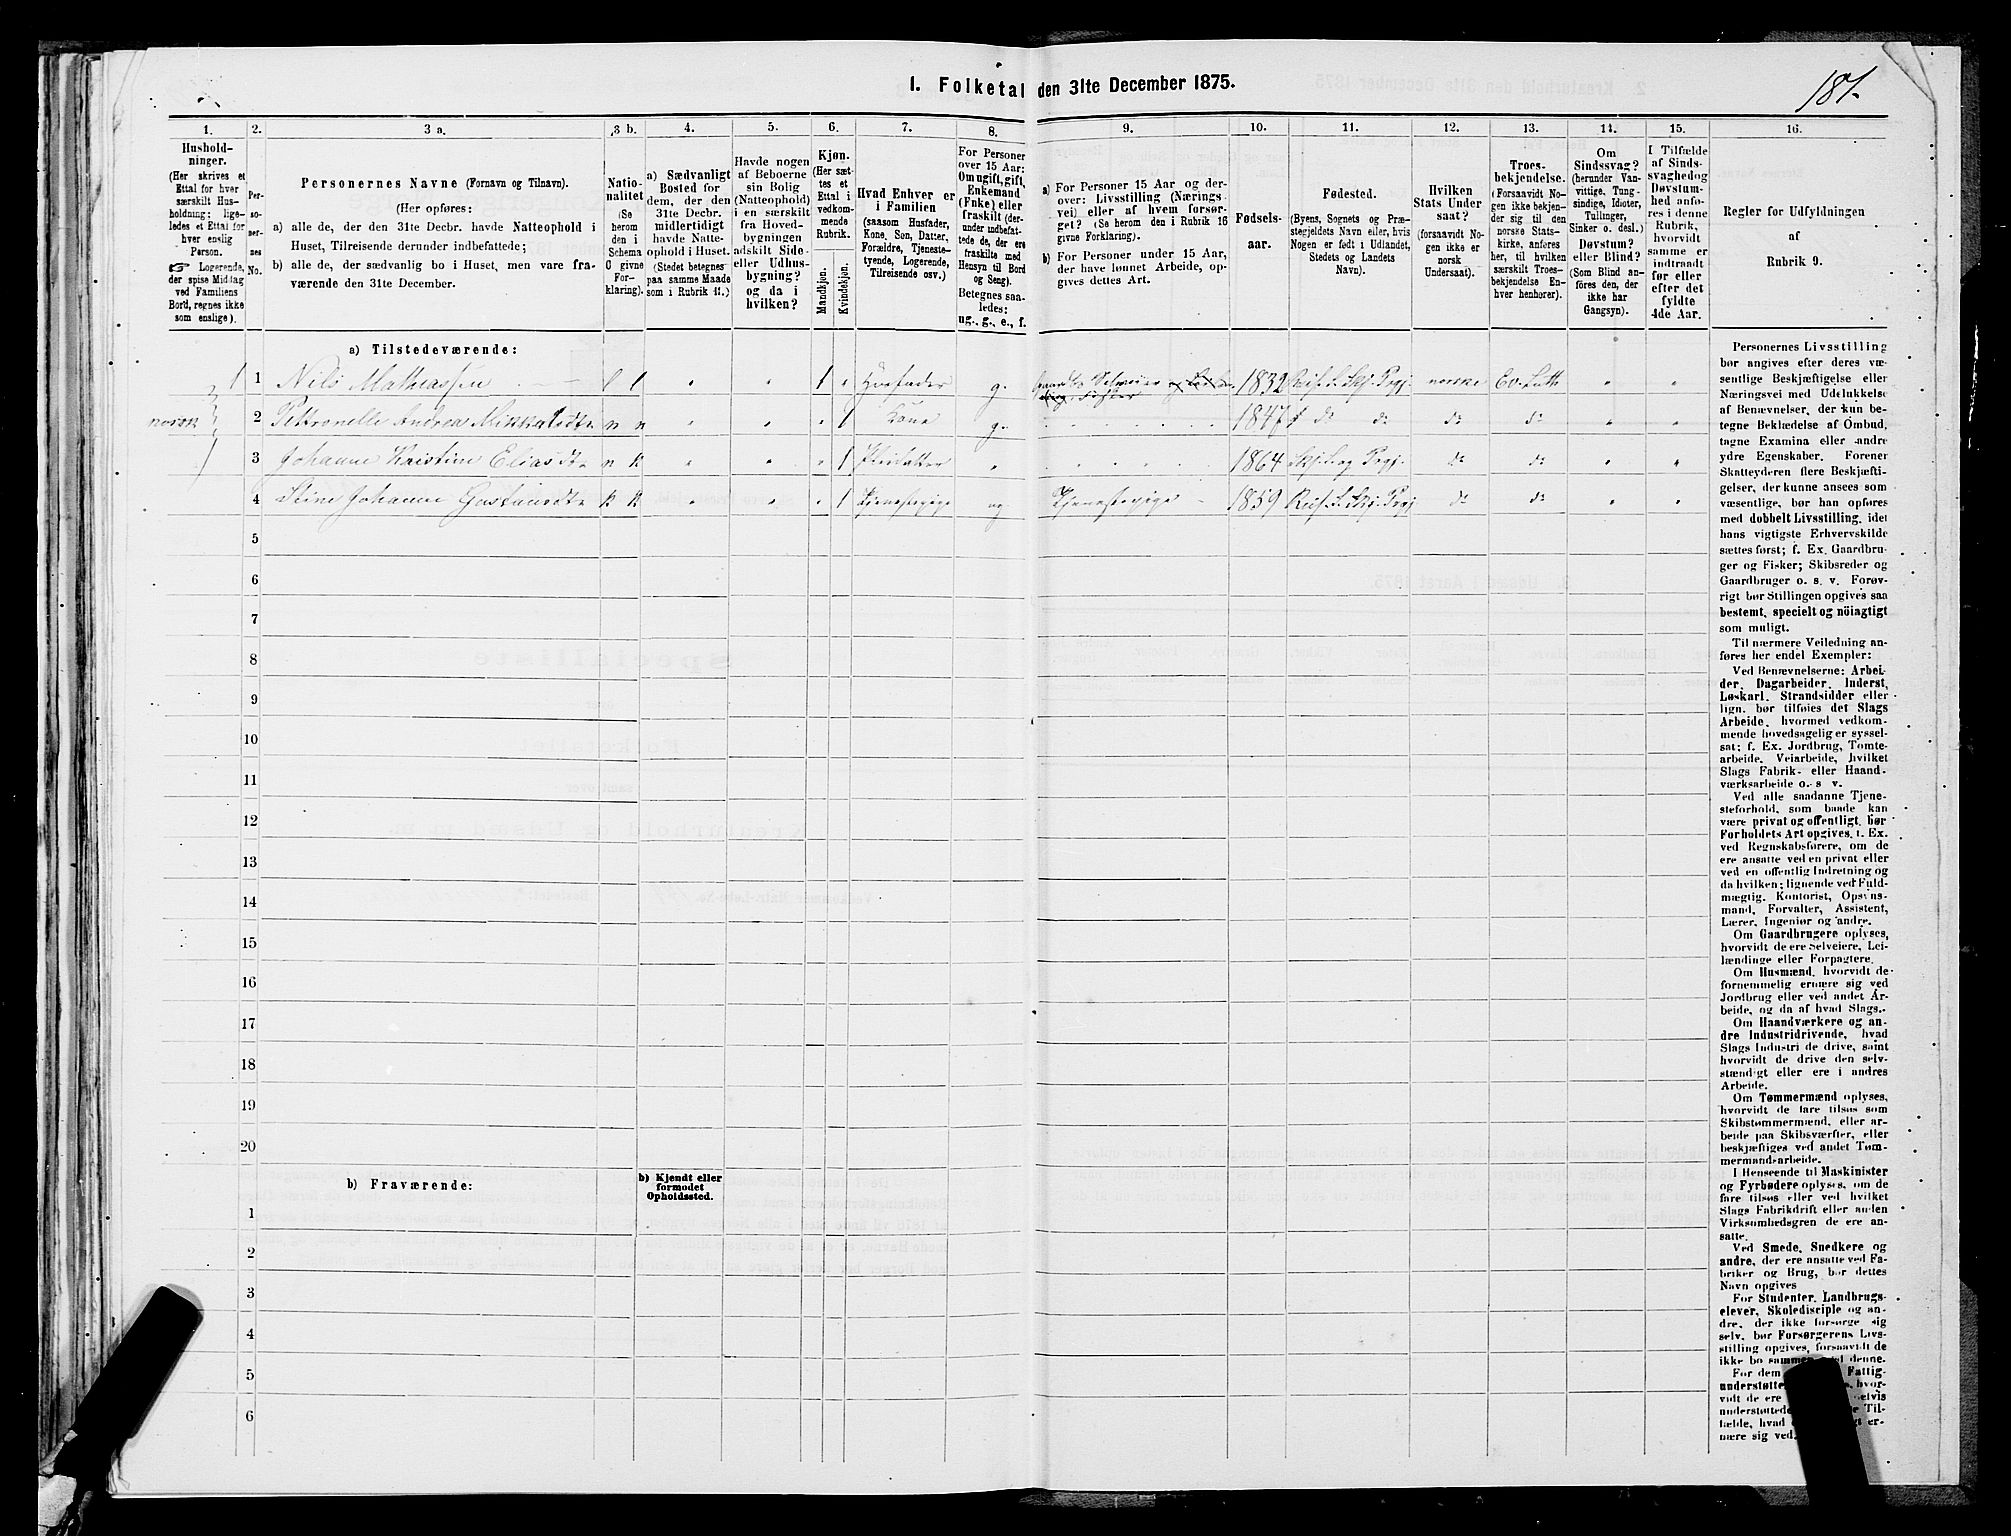 I. Folketal den 31te December 1875.
181.
1. 2. 3 a. 3 b. 4. 5. 6. 7. 8. 9. 10. 11. 12. 13. 14. 15. 16.
Hushold-
ninger.
(Her skrives et
Ettal for hver
særskilt Hus-
holdning; lige-
ledes et Ettal for
hver enslig
Person.
☞ Logerende,
der spise Middag
ved Familiens
Bord, regnes ikke
som enslige).
Per-
so-
ner-
nes
No.
Personernes Navne (Fornavn og Tilnavn).
(Her opføres:
a) alle de, der den 31te Decbr. havde Natteophold i
Huset, Tilreisende derunder indbefattede;
b) alle de, der sædvanlig bo i Huset, men vare fra-
værende den 31te December.
Natio-
nalitet
(Se
herom
den i
Schema
C givne
For-
klaring).
a) Sædvanligt
Bosted for
dem, der den
31te Decbr.
midlertidigt
havde Natte-
ophold i Huset.
(Stedet betegnes
paa samme Maade
som i Rubrik 11.)
Havde nogen
af Beboerne
sin Bolig
(Natteophold)
i en særskilt
fra Hoved-
bygningen
adskilt Side-
eller Udhus-
bygning?
og da i
hvilken?
Kjøn.
(Her sæt-
tes et
Ettal i
vedkom-
mende
Rubrik.
Mandkjøn.
Kvindekjøn.
Hvad Enhver er
i Familien
(saasom Husfader,
Kone, Søn, Datter,
Forældre, Tjeneste-
tyende, Logerende,
Tilreisende osv.)
For Personer
over 15 Aar:
Om ugift, gift,
Enkemand
(Enke) eller
fraskilt (der-
under indbefat-
tede de, der ere
fraskilte med
Hensyn til Bord
og Seng).
Betegnes saa-
ledes:
ug., g., e., f.
a) For Personer 15 Aar og der-
over: Livsstilling (Nærings-
vei) eller af hvem forsør-
get? (Se herom den i Rubrik 16
givne Forklaring).
b) For Personer under 15 Aar,
der have lønnet Arbeide, op-
gives dettes Art.
Fødsels-
aar.
Fødested.
(Byens, Sognets og Præ-
stegjeldets Navn eller, hvis
Nogen er født i Udlandet,
Stedets og Landets
Navn).
Hvilken
Stats Under
saat?
(forsaavidt No-
gen ikke er
norsk
Undersaat).
Troes-
bekjendelse.
(Forsaavidt No-
gen ikke bekjen-
der sig til den
norske Stats-
kirke, anføres
her, til hvilken
særskilt Troes-
bekjendelse En-
hver henhører).
Om
Sindssvag?
(herunder Van-
vittige, Tung-
sindige, Idioter,
Tullinger,
Sinker o. desl.)
Døvstum?
eller Blind?
(Som Blind an-
føres den, der
ikke har
Gangsyn).
I Tilfælde
af Sinds-
svaghed og
Døvstum-
hed anfø-
res i denne
Rubrik,
hvorvidt
samme er
indtraadt
før eller
efter det
fyldte
4de Aar.
Regler for Udfyldningen
af
Rubrik 9.
a) Tilstedeværende:
1 1 Nils Mathiassen l l " " 1 " Husfader g. 1832 norske Ev. Luth " "
norsk 2 Petronelle Andrea n n " " " 1 Kone g. 1847 d° d° d° d° " "
3 Johanne Kristine Eliasdtr n k " " " 1 Pleiedatter " 1864 d° d° " "
4 Stine Johanne k k " " " 1 Tjenestepige ug Tjenestepige 1859 d° d° " "
5
6
7
8
9
10
11
12
13
14
15
16
17
18
19
20
b) Fraværende:
b) Kjendt eller
formodet
Opholdssted.
1
2
3
4
5
6
Personernes Livsstilling
bør angives efter deres væ-
sentlige Beskjæftigelse eller
Næringsvei med Udelukkelse
af Benævnelser, der kun be-
tegne Beklædelse af Ombud,
tagne Examina eller andre
ydre Egenskaber. Forener
Skatteyderen flere Beskjæfti-
gelser, der kunne ansees som
væsentlige, bør han opføres
med dobbelt Livsstilling, idet
hans vigtigste Erhvervskilde
sættes først; f. Ex. Gaardbru-
ger og Fisker; Skibsreder og
Gaardbruger o. s. v. Forøv-
rigt bør Stillingen opgives saa
bestemt, specielt og nöiagtigt
som muligt.
Til nærmere Veiledning an-
føres her endel Exempler:
Ved Benævnelserne: Arbei-
der, Dagarbeider, Inderst,
Løskarl, Strandsidder eller
lign. bør tilføies det Slags
Arbeide, hvormed vedkom-
mende hovedsagelig er syssel-
sat; f. Ex. Jordbrug, Tomte-
arbeide, Veiarbeide, hvilket
Slags Fabrik- eller Haand-
værksarbeide o. s v.
Ved alle saadanne Tjene-
steforhold, som baade kan
være privat og offentligt, bør
Forholdets Art opgives, t. Ex.
ved Regnskabsførere, om de
ere ansatte ved en privat eller
ved en offentlig Indretning og
da hvilken; lignende ved Fuld-
mægtig, Kontorist, Opsyns-
mand, Forvalter, Assistent,
Lærer, Ingeniør og andre.
Om Gaardbrugere oplyses,
hvorvidt de ere Selveiere, Lei-
lændinge eller Forpagtere.
Om Husmænd, hvorvidt de
fornemmelig ernære sig ved
Jordbrug eller ved andet Ar-
beide, og da af hvad Slags.
Om Haandværkere og an-
dre Industridrivende, hvad
Slags Industri de drive, samt
hvorvidt de drive den selv-
stændigt eller ere i andres
Arbeide.
Om Tømmermænd oplyses,
hvorvidt de fare tilsøs som
Skibstømmermænd, eller ar-
beide paa Skibsværfter, eller
beskjæftiges ved andet Tøm-
mermandsarbeide.
I Henseende til Maskinister
og Fyrbødere oplyses, om de
fare tilsøs eller ved hvilket
Slags Fabrikdrift eller anden
Virksomhedsgren de ere an-
satte.
Ved Smede, Snedkere og
andre, der ere ansatte ved Fa-
briker og Brug, bør dettes
Navn opgives
For Studenter, Landbrugs-
elever, Skoledisciple og an-
dre, der ikke forsørge sig
selv, bør Forsørgerens Livs-
stilling opgives, forsaavidt de
ikke bo sammen denne.
For dem Fattig-
understøtte hvor-
vidt de ere selvis
understøttede Til-
fælde, hvad er-
nære sig ved.